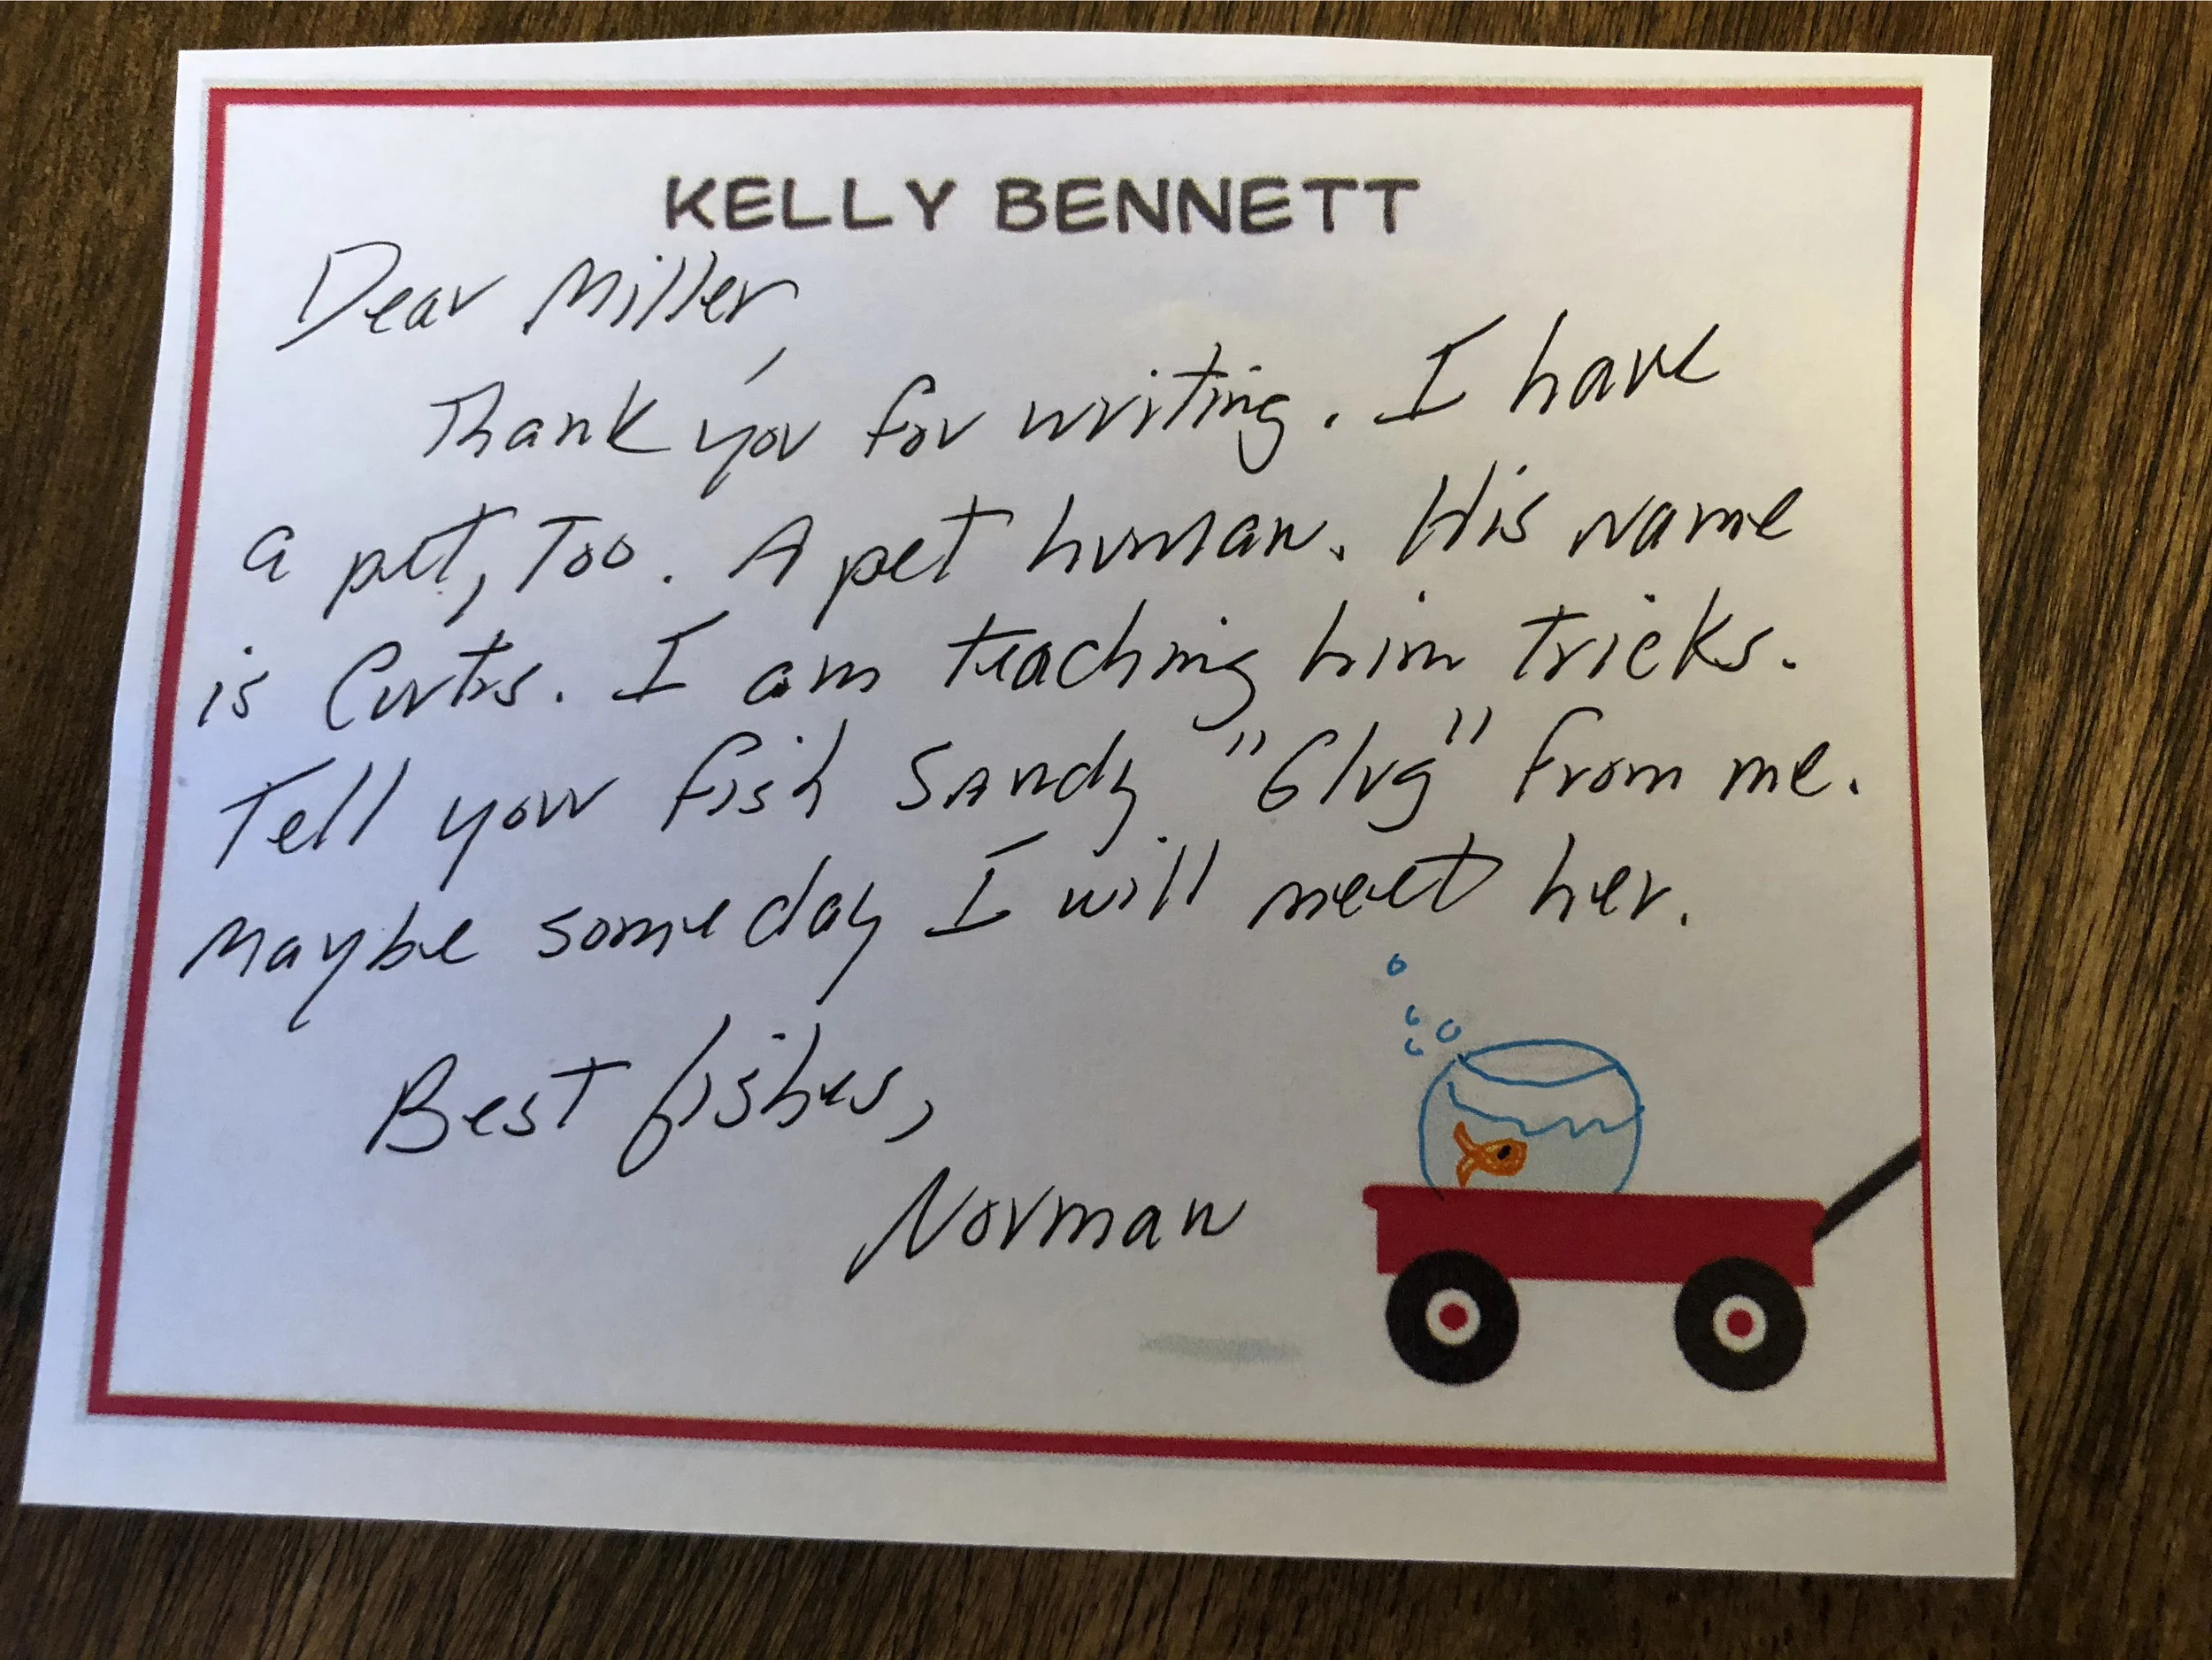 KELLY BENNETT
Dear Miller,
Thank you for writing. I have
a pet, too. A pet human. His name
is Curtis. I am teaching him tricks.
Tell your fish Sandy "Glug" from me.
Maybe someday I will meet her.
Best fishes,
Norman